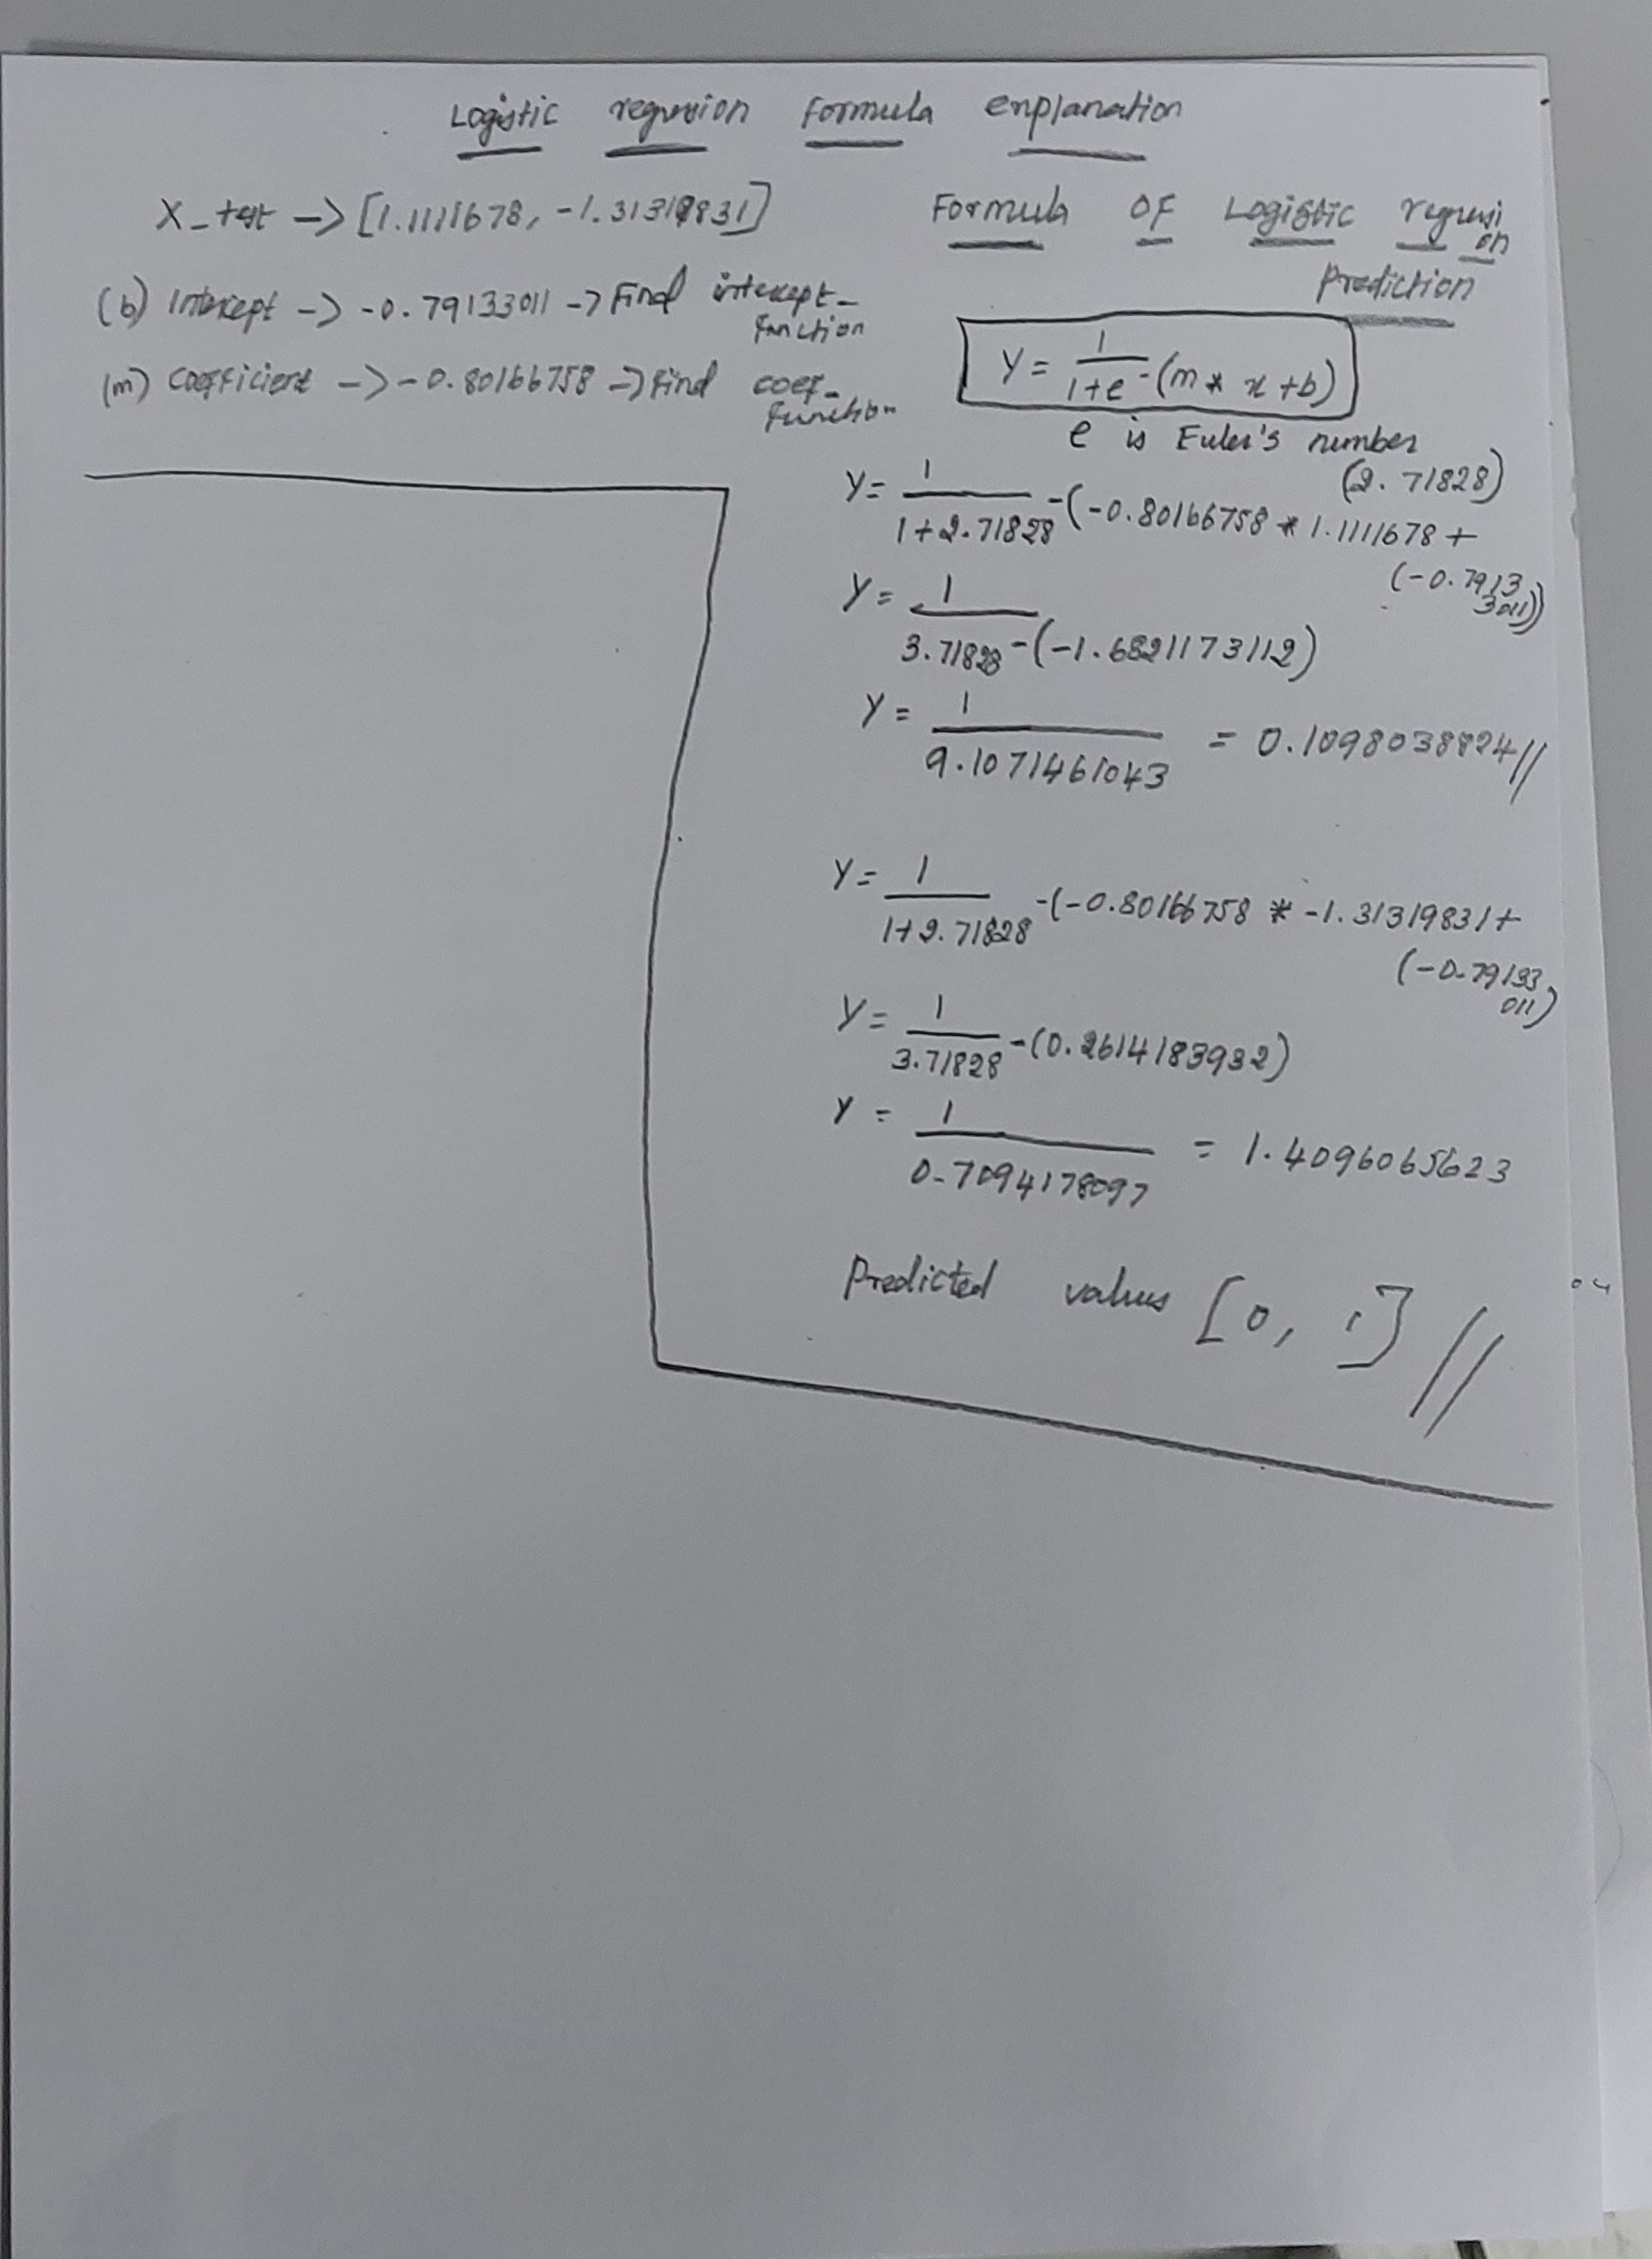 Logistic regresion Formula explanation
X_test -> [1.1111678, -1.31319831]
(b) Intercept -> -0.79133011 -> Find intercept_
function
(m) Coefficient -> -0.80166758 -> Find coef_
function
Formula OF Logistic regressi
on
Prediction
Y = 1 / 1+e -(m * x +b)
e is Euler's number
(2.71828)
Y = 1 / 1+2.71828 -(-0.80166758 * 1.1111678 +
(-0.7913
3011))
Y = 1 / 3.71828 -(-1.6821173112)
Y = 1 / 9.1071461043 = 0.1098038824//
Y = 1 / 1+2.71828 -(-0.80166758 * -1.31319831+
(-0.79133
011)
Y = 1 / 3.71828 -(0.2614183932)
Y = 1 / 0.7094178097 = 1.4096065623
Predicted values [0, 1] //